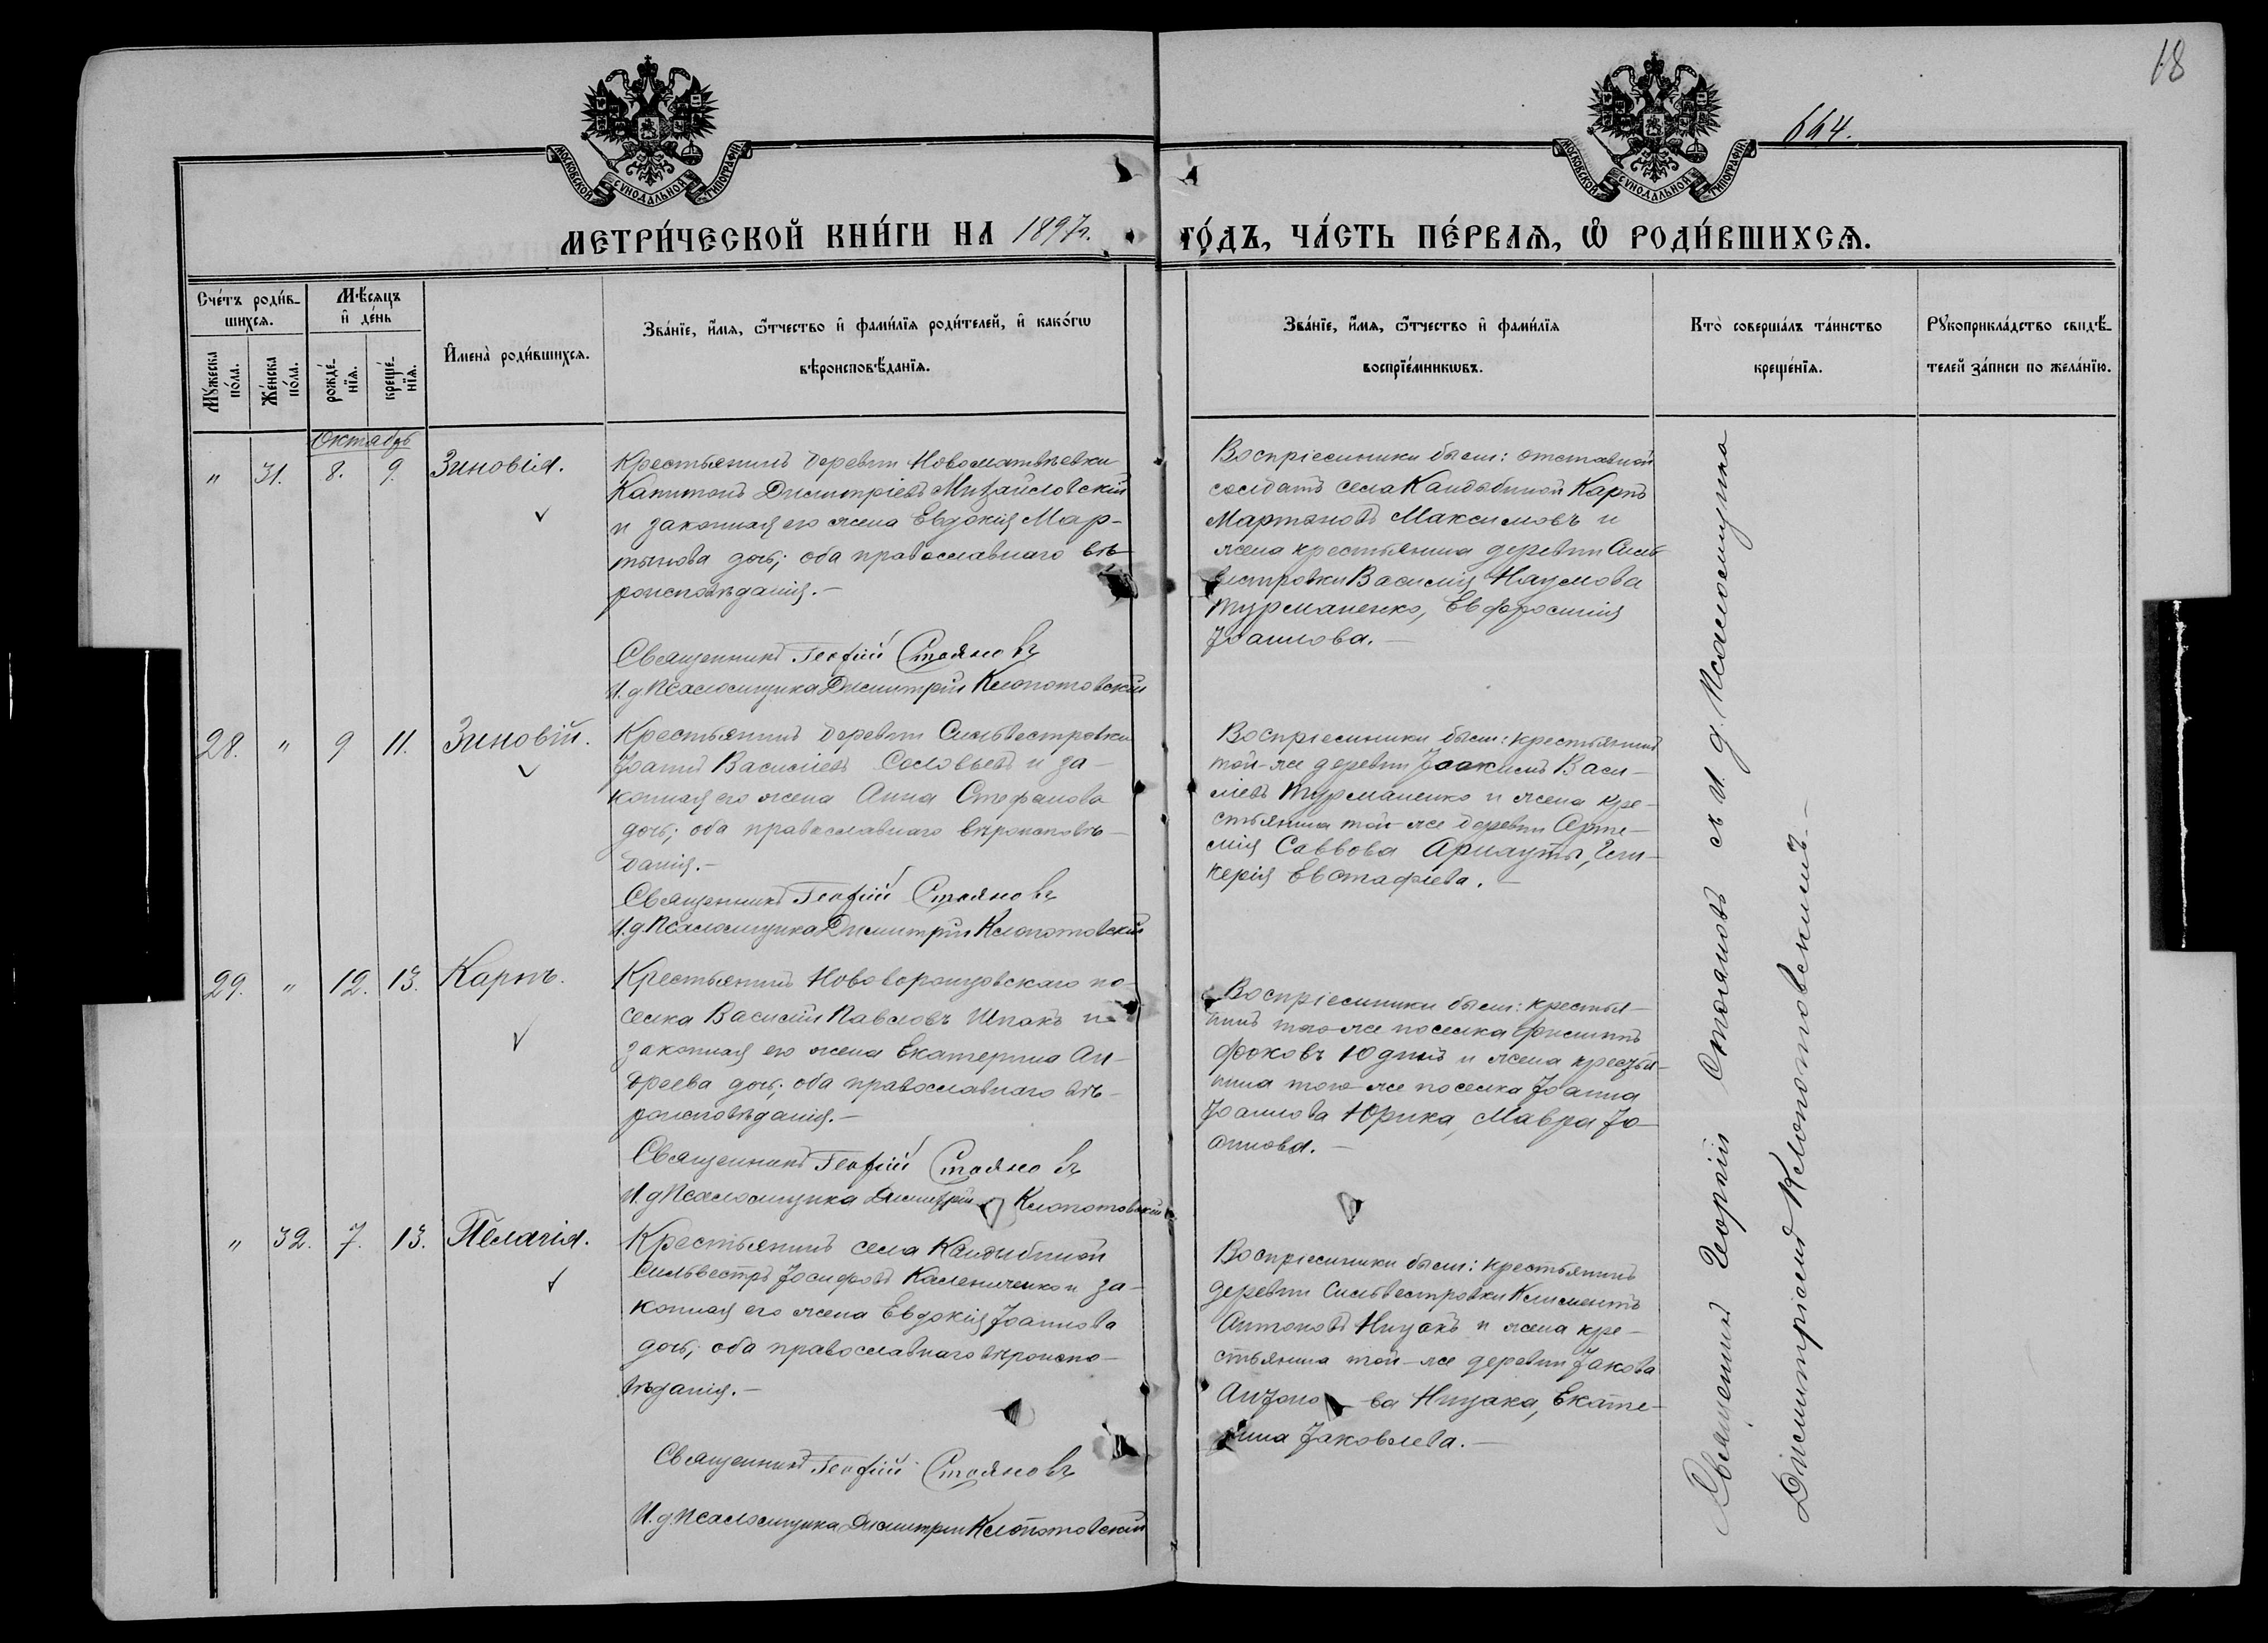 18
664.
МОСКОВСКОЙ СѴНОДАЛЬНОЙ ТИПОГРАФІИ
МОСКОВСКОЙ СѴНОДАЛЬНОЙ ТИПОГРАФІИ
МЕТРИ́ЧЕСКОЙ КНИ́ГИ НА 1897г. ГО́ДЪ, ЧА́СТЬ ПЕ́РВАЯ, Ѡ҆ РОДИ́ВШИХСЯ.
Сче́тъ роди́в-
шихся.
Мꙋ́жеска
по́ла.
Же́нска
по́ла.
Мѣ́сяцъ
и҆ де́нь
рожде́-
нїя.
креще́-
нїя.
И҆мена̀ роди́вшихся.
Зва́нїе, и҆́мя, ѻ҆́тчество и҆ фами́лїя роди́телей, и҆ како́гѡ
вѣроисповѣ́данїя.
Зва́нїе, и҆́мя, ѻ҆́тчество и҆ фами́лїя
воспрїе́мникѡвъ.
Кто̀ соверша́лъ та́инство
креще́нїя.
Рꙋкоприкла́дство свидѣ́-
телей за́писи по жела́нїю.
Октябрь
" 31. 8. 9. Зиновія.
Крестьянинъ деревни Новоматвѣевки
Капитонъ Димитріевъ Михайловскій
и законная его жена Евдокія Мар-
тынова дочь; оба православнаго вѣ-
роисповѣданія.-
Священникъ Георгій Стояновъ
И. д. Псаломщика Димитрій Клопотовскій
Воспріемники были: отставной
солдатъ села Кандыбиной Карпъ
Мартыновъ Максимовъ и
жена крестьянина деревни Силь-
вестровки Василія Наумова
Турманенко, Евфросинія
Іоаннова.-
28. " 9 11. Зиновій.
Крестьянинъ деревни Сильвестровки
Іоаннъ Васильевъ Соловьевъ и за-
конная его жена Анна Стефанова
дочь; оба православнаго вѣроисповѣ-
данія.-
Священникъ Георгій Стояновъ
И. д. Псаломщика Димитрій Клопотовскій
Воспріемники были: крестьянинъ
той-же деревни Іоакимъ Васи-
ліевъ Турманенко и жена кре-
стьянина той-же деревни Арте-
мія Саввова Арнауты, Гли-
керія Евстафіева.-
29. " 12. 13. Карпъ.
Крестьянинъ Нововоронцовскаго по-
селка Василій Павловъ Шпакъ и
законная его жена Екатерина Ан-
дреева дочь; оба православнаго вѣ-
роисповѣданія.-
Священникъ Георгій Стояновъ
И. д. Псаломщика Димитрій Клопотовскій
Воспріемники были: крестья-
нинъ того-же поселка
Фоковъ и жена крестья-
нина того-же поселка Іоанна
Іоаннова Юрика, Мавра Іо-
аннова.-
" 32. 7. 13. Пелагія.
Крестьянинъ села Кандыбиной
Сильвестръ Іосифовъ Калениченко и за-
конная его жена Евдокія Іоаннова
дочь; оба православнаго вѣроиспо-
вѣданія.-
Священникъ Георгій Стояновъ
И. д. Псаломщика Димитрій Клопотовскій
Воспріемники были: крестьянинъ
деревни Сильвестровки Климентъ
Антоновъ Ницакъ и жена кре-
стьянина той-же деревни Іакова
Антонова Ницака, Екате-
рина Іаковлева.-
Священникъ Георгій Стояновъ съ И. д. Псаломщика
Димитріемъ Клопотовскимъ.-